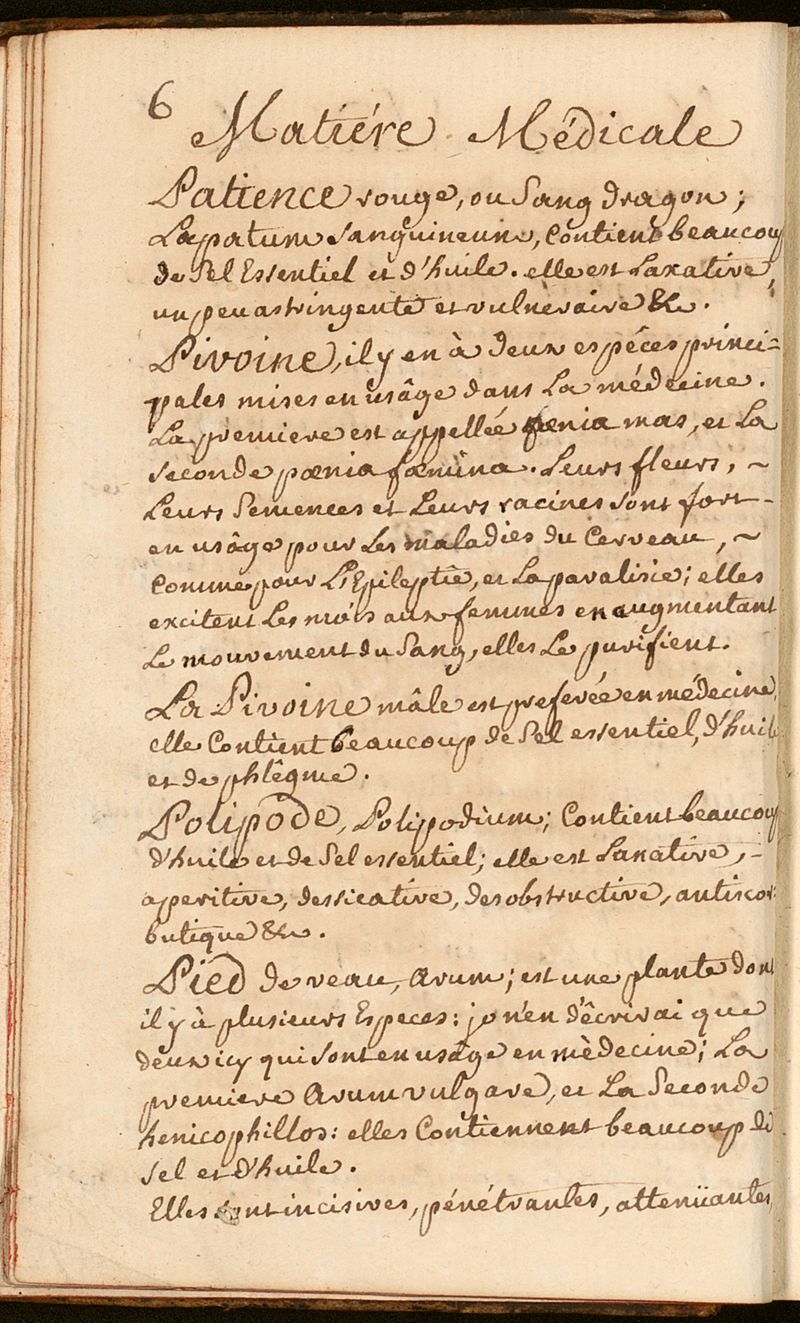 6
Matiére Médicale
Patience rouge, ou Sang dragon;
Lapatum Sanguineum, Contient beaucoup
de Sel Essentiel et d'huile. elle est Laxative,
un peu astringente et vulnéraire &c.
Pivoine, il y en à deux espéces princi=
pales mises en usâge dans La médecine.
La premiere est appellée pœnia mas, et La
Seconde pœnia fœmina. Leurs fleurs, ~
Leurs Semences et Leurs racines sont fort-
en usâge pour Les maladies du Cerveau, ~
Comme pour L'Epileptie, et La paralisie; elles
excitent Les mois aux femmes en augmentant
Le mouvement du Sang, elles Le purifient.
La Pivoine mâle est preferée en médecine,
elle Contient beaucoup de Sel essentiel, d'huile
et de phlêgme.
Polipôde, Polipodium; Contient beaucoup
d'huile et de Sel essentiel; elle est Laxative, -
aperitive, dessicative, desobstructive, antiscor:
butique &c.
Pied de veau, Arum; est une plante dont
il y à plusieurs Especes: je n'en d'écrirai que
deux icy qui sont en usâge en mèdecine; La
premiere Arum vulgare, et La Seconde
henicophillos: elles Contiennent beaucoup de
Sel et d'huile.
Elles sont incisives, pénétrantes, attenüantes,